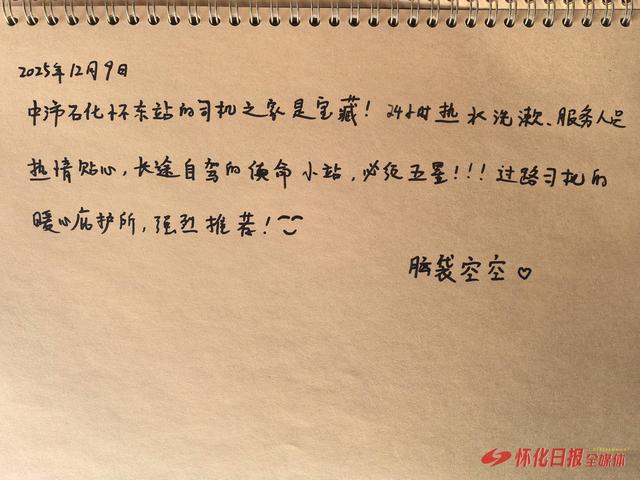 2025年12月9日
中沛石化怀东站的司机之家是宝藏！24小时热水洗漱、服务人员
热情贴心，长途自驾的续命小站，必须五星！！！过路司机的
暖心庇护所，强烈推荐！
脑袋空空♡
怀化日报全媒体